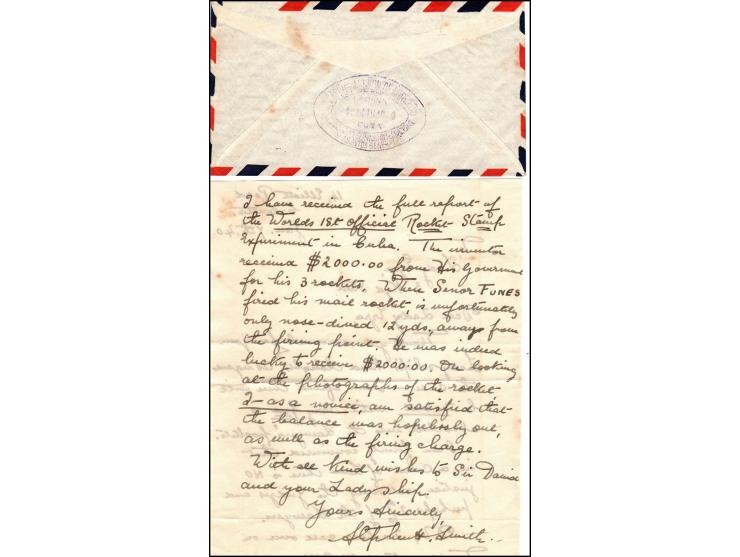 I have received the full report of
the Worlds 1st Official Rocket Stamp
Experiment in Cuba. The inventor
received $2000.00 from His Governme
for his 3 rockets. When Senor FUNES
fired his mail rocket, is unfortunately
only nose-dived 12 yds, aways from
the firing point. He was indeed
lucky to receive $2000.00. On looking
at the photographs of the rocket,
I - as a novice, am satisfied that
the balance was hopelessly out,
as well as the firing charge.
With all kind wishes to Sir David
and your Ladyship.
Yours Sincerely,
Stephen H. Smith.